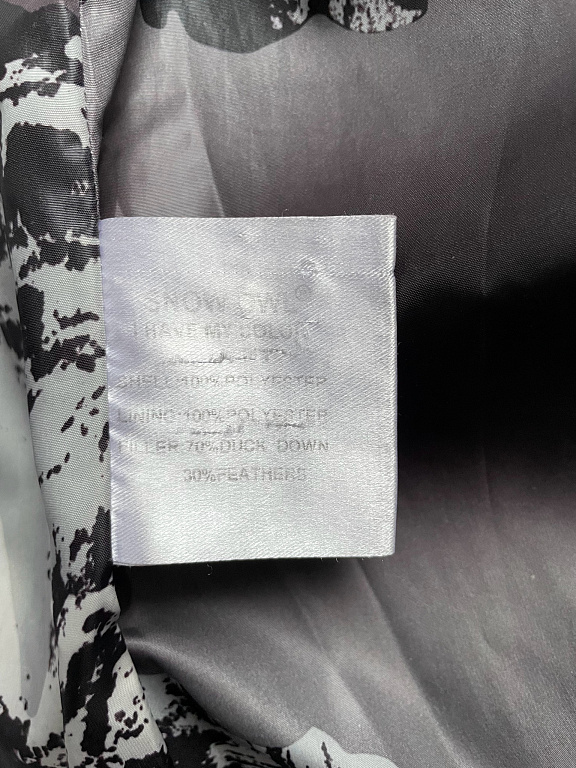 SNOW OWL®
I HAVE MY COLOR
SHELL:100%POLYESTER
LINING:100%POLYESTER
FILLER:70%DUCK DOWN
30%FEATHERS